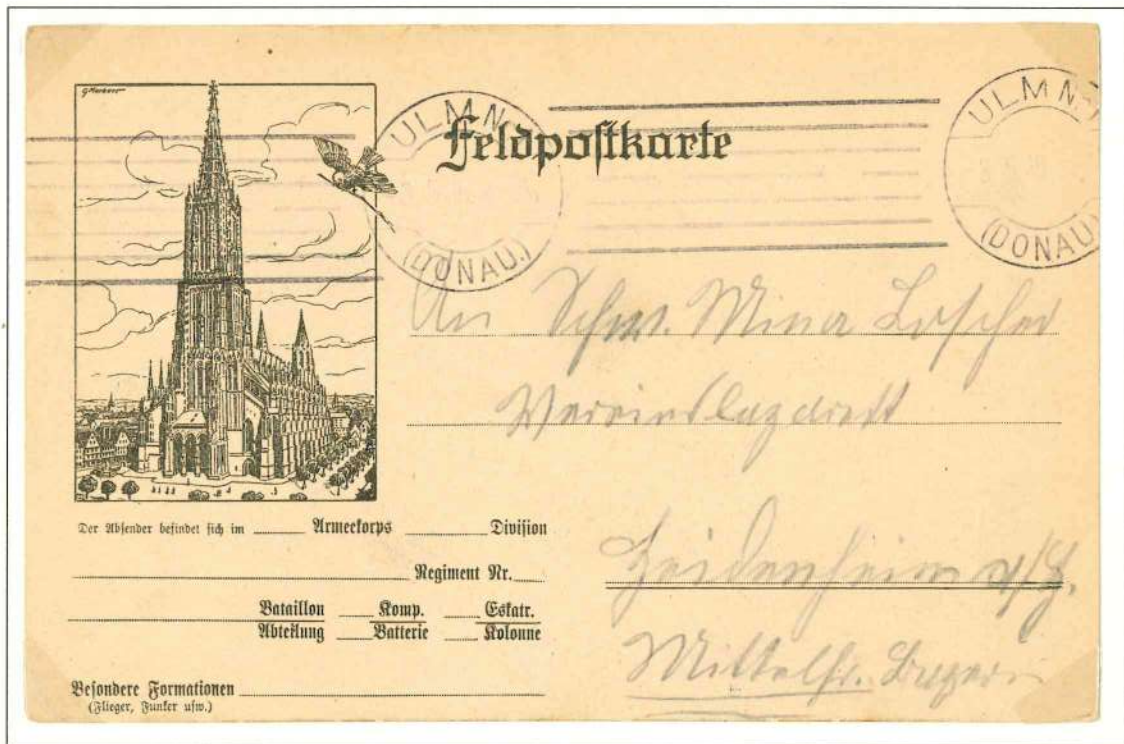 ULM N.
(DONAU.)
Feldpoſtkarte
ULM N.
(DONAU)
An Schw. Mina
Vereinslazarett
Heidenheim a/H.
Mittelfr. Bayern
Der Abſender befindet ſich im ______ Armeekorps ______ Diviſion
Regiment Nr.
Bataillon ___ Komp. ___ Eskatr.
Abteilung ___ Batterie ___ Kolonne
Beſondere Formationen
(Flieger, Funker uſw.)